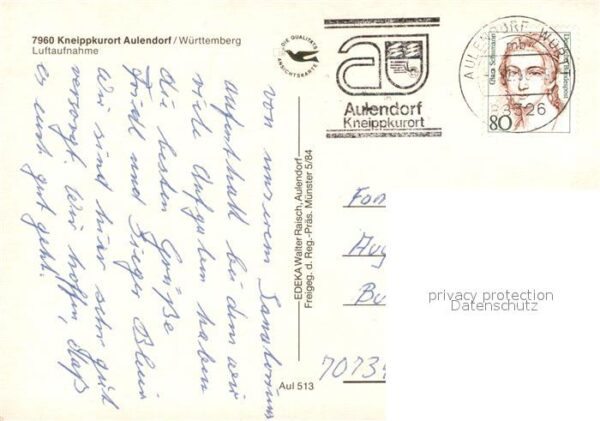 7960 Kneippkurort Aulendorf / Württemberg
Luftaufnahme
DIE QUALITÄTS
ANSICHTSKARTE
au
Aulendorf
Kneippkurort
AULENDORF, WÜRTT
mb
8326
Clara Schumann
Deutsche Bundespost
80
von unserem Sanatoriums
aufenthalt bei dem wir
viele Aufgaben haben
die besten Grüße
und
Wir sind hier sehr gut
versorgt. Wir hoffen, daß
es euch gut geht.
EDEKA Walter Raisch, Aulendorf
Freigeg. d. Reg.-Präs. Münster 5/84
Aul 513
7073
privacy protection
Datenschutz